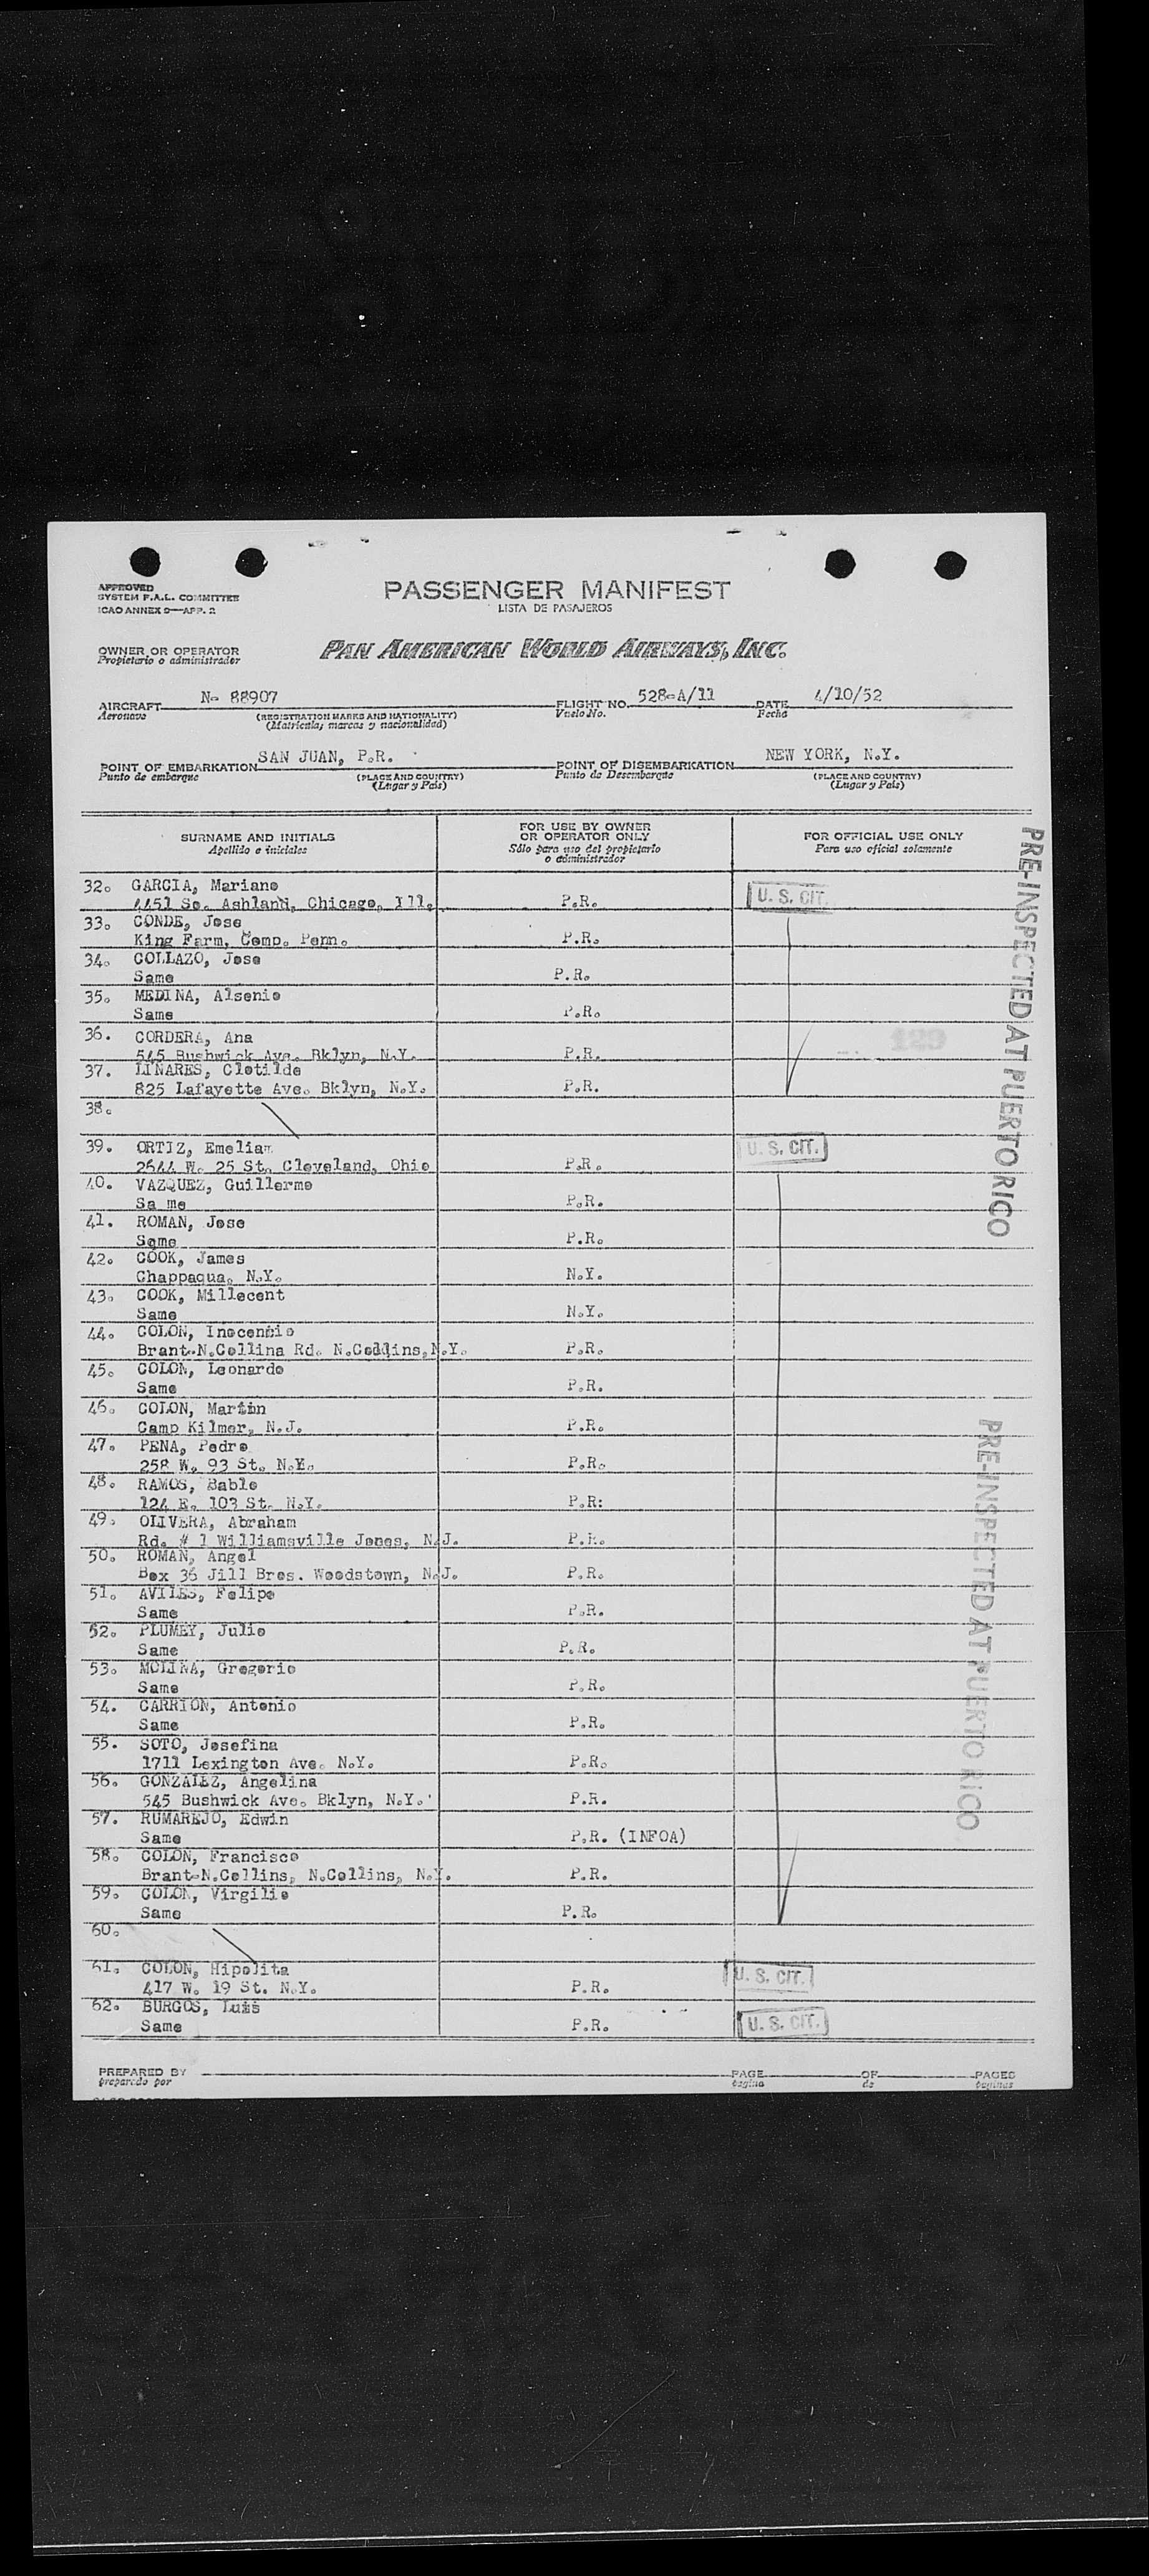 APPROVED
SYSTEM F.A.L. COMMITTEE
ICAO ANNEX 9—APP. 2
PASSENGER MANIFEST
LISTA DE PASAJEROS
OWNER OR OPERATOR
Propietario o administrador
PAN AMERICAN WORLD AIRWAYS, INC.
AIRCRAFT N- 88907 FLIGHT NO. 528-A/11 DATE 4/10/52
Aeronave (REGISTRATION MARKS AND NATIONALITY) Vuelo No. Fecha
(Matricula, marcas y nacionalidad)
POINT OF EMBARKATION SAN JUAN, P.R. POINT OF DISEMBARKATION NEW YORK, N.Y.
Punto de embarque (PLACE AND COUNTRY) Punto de Desembarque (PLACE AND COUNTRY)
(Lugar y Pais) (Lugar y Pais)
SURNAME AND INITIALS
Apellido e iniciales
FOR USE BY OWNER
OR OPERATOR ONLY
Sólo para uso del propietario
o administrador
FOR OFFICIAL USE ONLY
Para uso oficial solamente
32. GARCIA, Mariano
4451 So. Ashland, Chicago, Ill. P.R. U. S. CIT.
33. CONDE, Jose
King Farm, Comp. Penn. P.R.
34. COLLAZO, Jose
Same P.R.
35. MEDINA, Alsenio
Same P.R.
36. CORDERA, Ana
545 Bushwick Ave. Bklyn, N.Y. P.R.
129
37. LINARES, Clotilde
825 Lafayette Ave. Bklyn, N.Y. P.R.
38.
39. ORTIZ, Emelian U. S. CIT.
2644 W. 25 St. Cleveland, Ohio P.R.
40. VAZQUEZ, Guillermo
Sa me P.R.
41. ROMAN, Jose
Same P.R.
42. COOK, James
Chappaqua, N.Y. N.Y.
43. COOK, Millecent
Same N.Y.
44. COLON, Inocencio
Brant-N.Collina Rd. N.Coddins, N.Y. P.R.
45. COLON, Leonardo
Same P.R.
46. COLON, Martin
Camp Kilmer, N.J. P.R.
47. PENA, Pedro
258 W. 93 St. N.Y. P.R.
48. RAMOS, Bable
124 E. 103 St. N.Y. P.R:
49. OLIVERA, Abraham
Rd. # 1 Williamsville Jones, N.J. P.R.
50. ROMAN, Angel
Box 36 Jill Bros. Woodstown, N.J. P.R.
51. AVILES, Felipe
Same P.R.
52. PLUMEY, Julio
Same P.R.
53. MOLINA, Gregorio
Same P.R.
54. CARRION, Antonio
Same P.R.
55. SOTO, Josefina
1711 Lexington Ave. N.Y. P.R.
56. GONZALEZ, Angelina
545 Bushwick Ave. Bklyn, N.Y. P.R.
57. RUMAREJO, Edwin
Same P.R. (INFOA)
58. COLON, Francisco
Brant-N.Collins, N.Collins, N.Y. P.R.
59. COLON, Virgilio
Same P.R.
60.
61. COLON, Hipolita U. S. CIT.
417 W. 19 St. N.Y. P.R.
62. BURGOS, Luis
Same P.R. U. S. CIT.
PRE-INSPECTED AT PUERTO RICO
PRE-INSPECTED AT PUERTO RICO
PREPARED BY PAGE OF PAGES
preparado por pagina de paginas